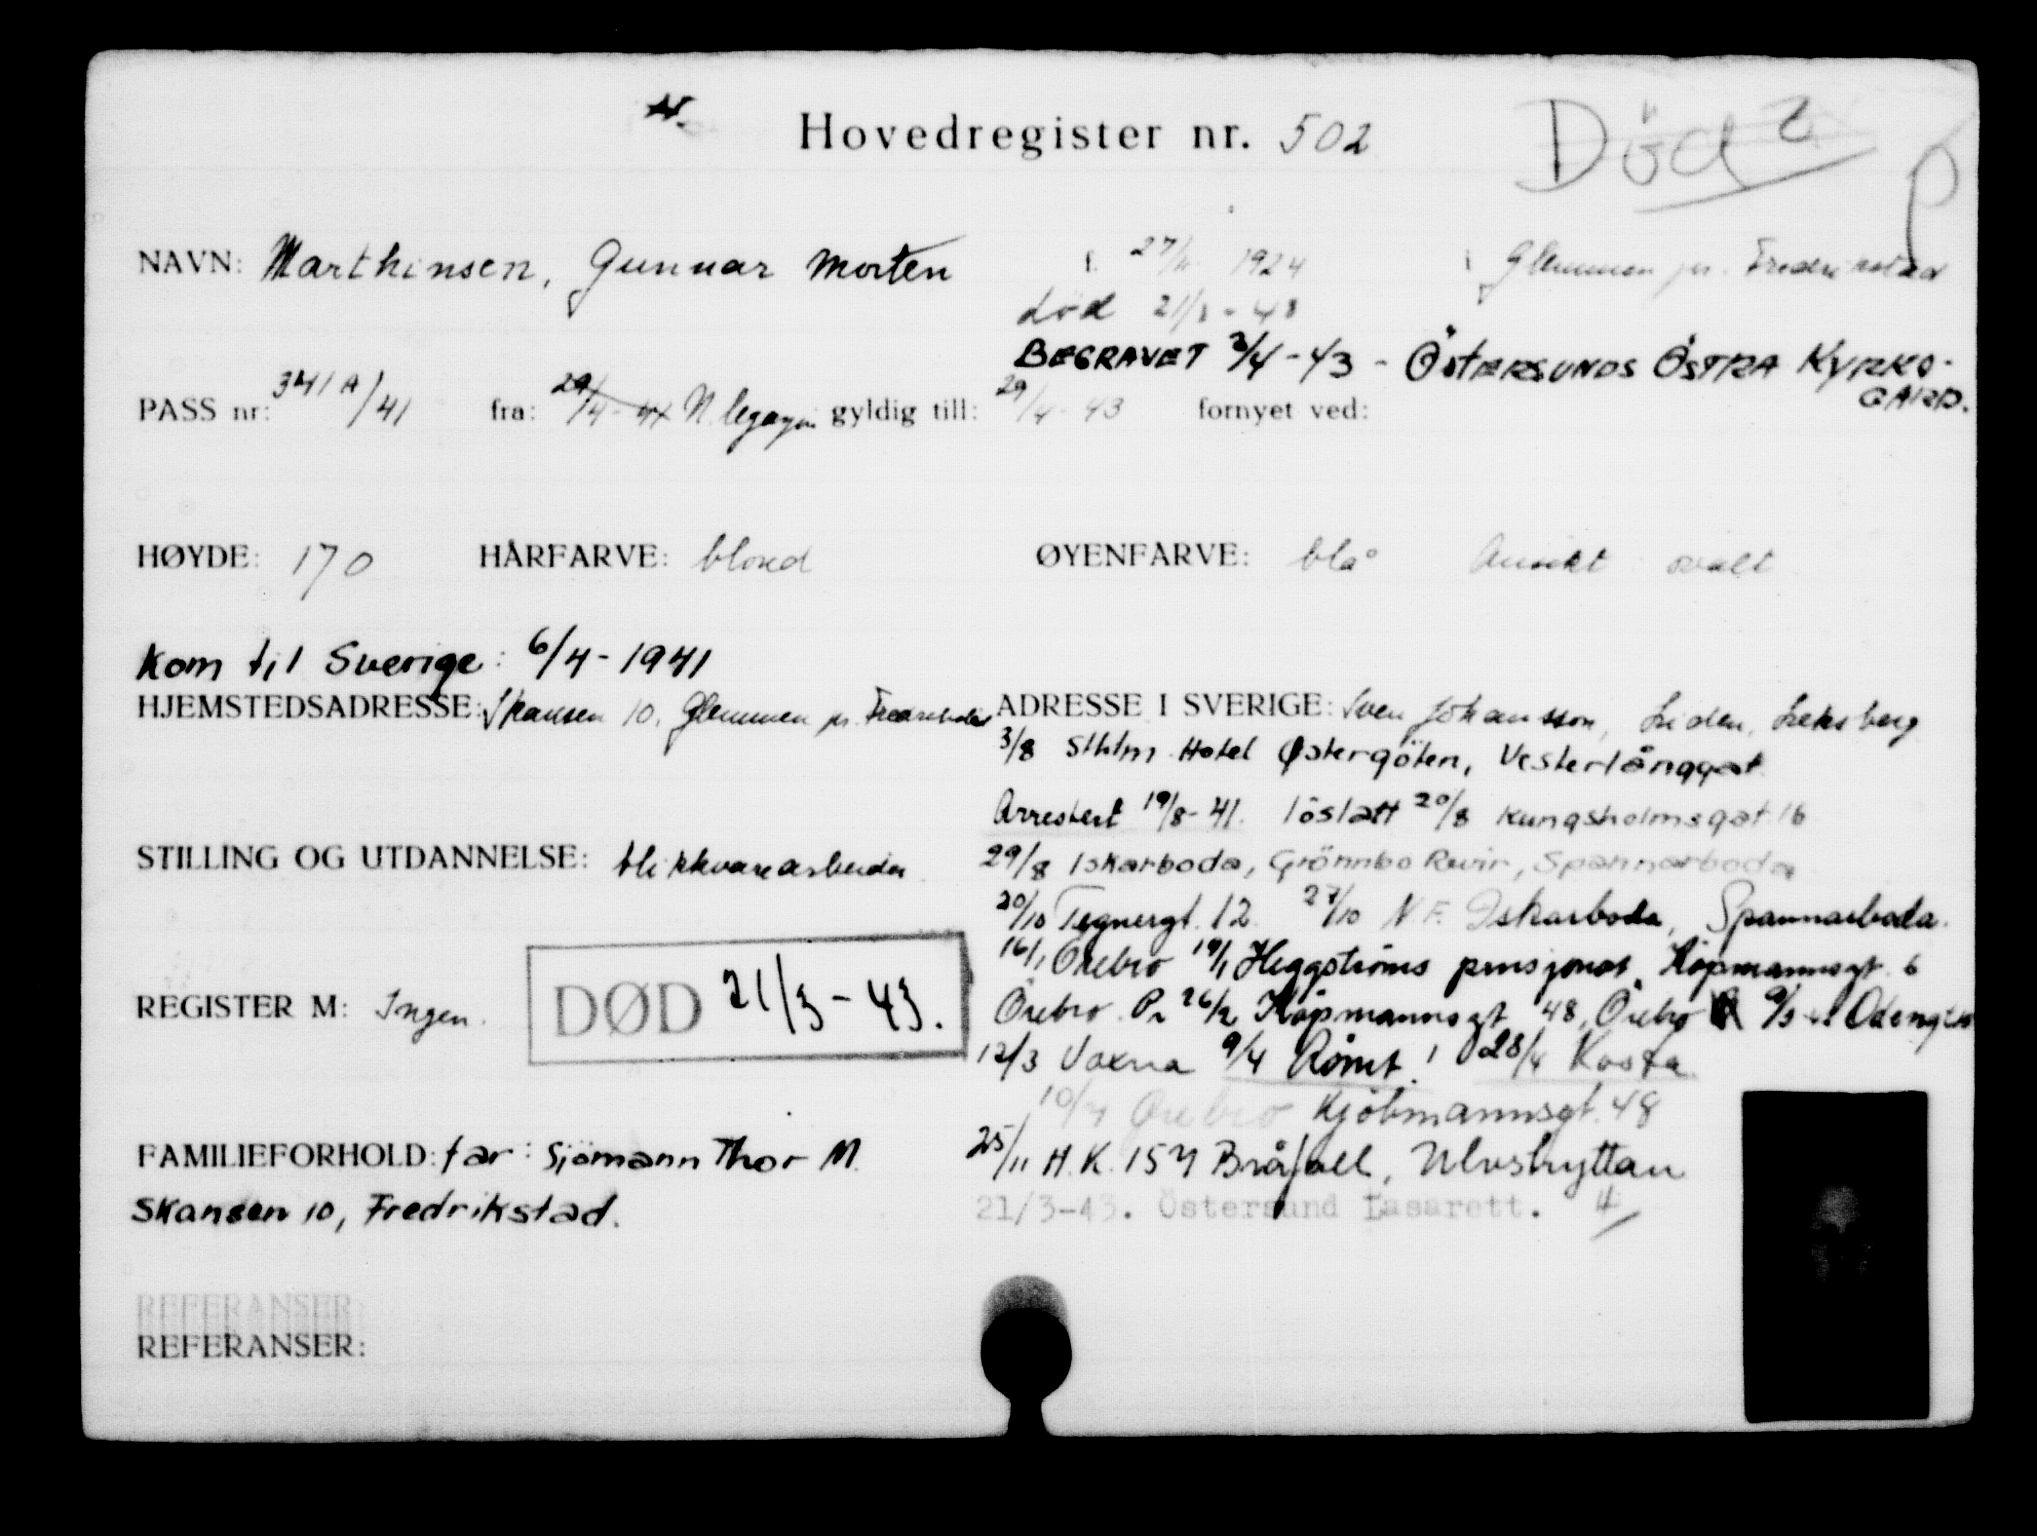 Hovedregister nr. 502
Död
NAVN: Marthinsen, Gunnar Morten f. 27/ 1924 i Glemmen pr. Fredrikstad
død 21/3 - 43
BEGRAVET 3/4 - 43 - ÖSTERSUNDS ÖSTRA KYRKO-
GÅRD.
PASS nr: 341 A/41 fra: 29/4 - 41 N. legasjon gyldig till: 29/4 - 43 fornyet ved:
HØYDE: 170 HÅRFARVE: blond ØYENFARVE: blå Ansikt ovalt
Kom til Sverige: 6/4 - 1941
HJEMSTEDSADRESSE: Skansen 10, Glemmen pr. Fredrikstad
ADRESSE I SVERIGE: Sven Johansson, Liden, Leksberg
3/8 Sthlm Hotel Østergöten, Vesterlånggat.
Arrestert 19/8 - 41. löslatt 20/8 Kungsholmsgat 16
STILLING OG UTDANNELSE: blikkvarearbeider
29/8 Iskarboda, Grönnbo Revir, Spannarboda
20/10 Tegnergt. 12 27/10 N.F. Iskarboda, Spannarboda.
16/1 Örebro 19/1 Heggströms pensjonat, Köpmannsgt. 6
REGISTER M: Ingen.
DØD 21/3 - 43.
Örebro. 26/2 Köpmannsgt 48, Örebro 9/3 Odengt
12/3 Voxna 9/4 Rømt! 28/4 Kosta
10/7 Örebro Kjöbmannsgt. 48
FAMILIEFORHOLD: far: Sjömann Thor M.
Skansen 10, Fredrikstad.
25/11 H.K. 154 Bråfall, Ulvshyttan
21/3-43. Östersund Lasarett. 4
REFERANSER
REFERANSER: